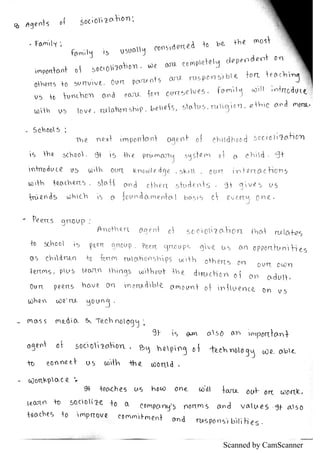 ⊛ Agents of socialization;
- Family;
Family is usually considered to be the most
important of socialization. we are completely dependent on
others to survive. Our parents are responsible for teaching
us to function and care for ourselves. Family will introduce
with us love, relationship, beliefs, status, religion, ethic and more.
- Schools;
The next important agent of childhood socialization
is the school. It is the primary system of a child. It
introduce us with our knowledge, skill, our interactions
with teachers, staff and other students. It gives us
friends which is a foundamental basis of every one.
- Peers group:
Another agent of socialization that relates
to school is peer group. Peer groups give us an opportunities
as children to form relationships with others on our own
terms, plus learn things without the direction of an adult.
Our peers have an incredible amount of influence on us
when we're young.
- mass media & Technology;
It is am also an important
agent of socialization. By helping of technology we able
to connect us with the world.
- workplace:
It teaches us how one will fare out or work,
learn to socialize to a company's norms and values It also
teaches to improve commitment and responsibilities.
Scanned by CamScanner